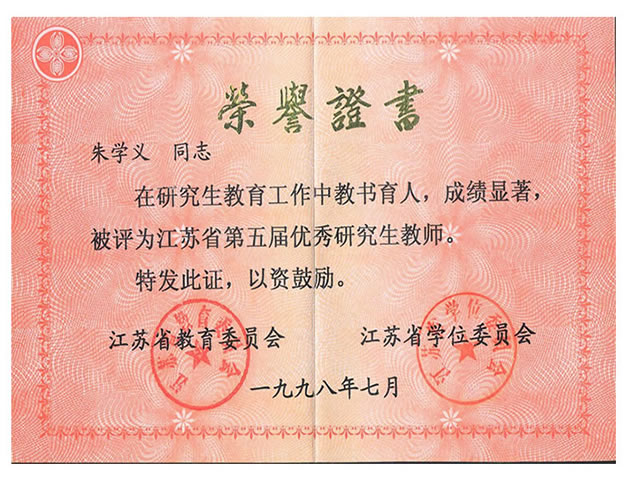 榮譽證書
朱学义 同志
在研究生教育工作中教书育人，成绩显著，
被评为江苏省第五届优秀研究生教师。
特发此证，以资鼓励。
江苏省教育委员会 江苏省学位委员会
江苏省教育委员会 江苏省学位委员会
一九九八年七月